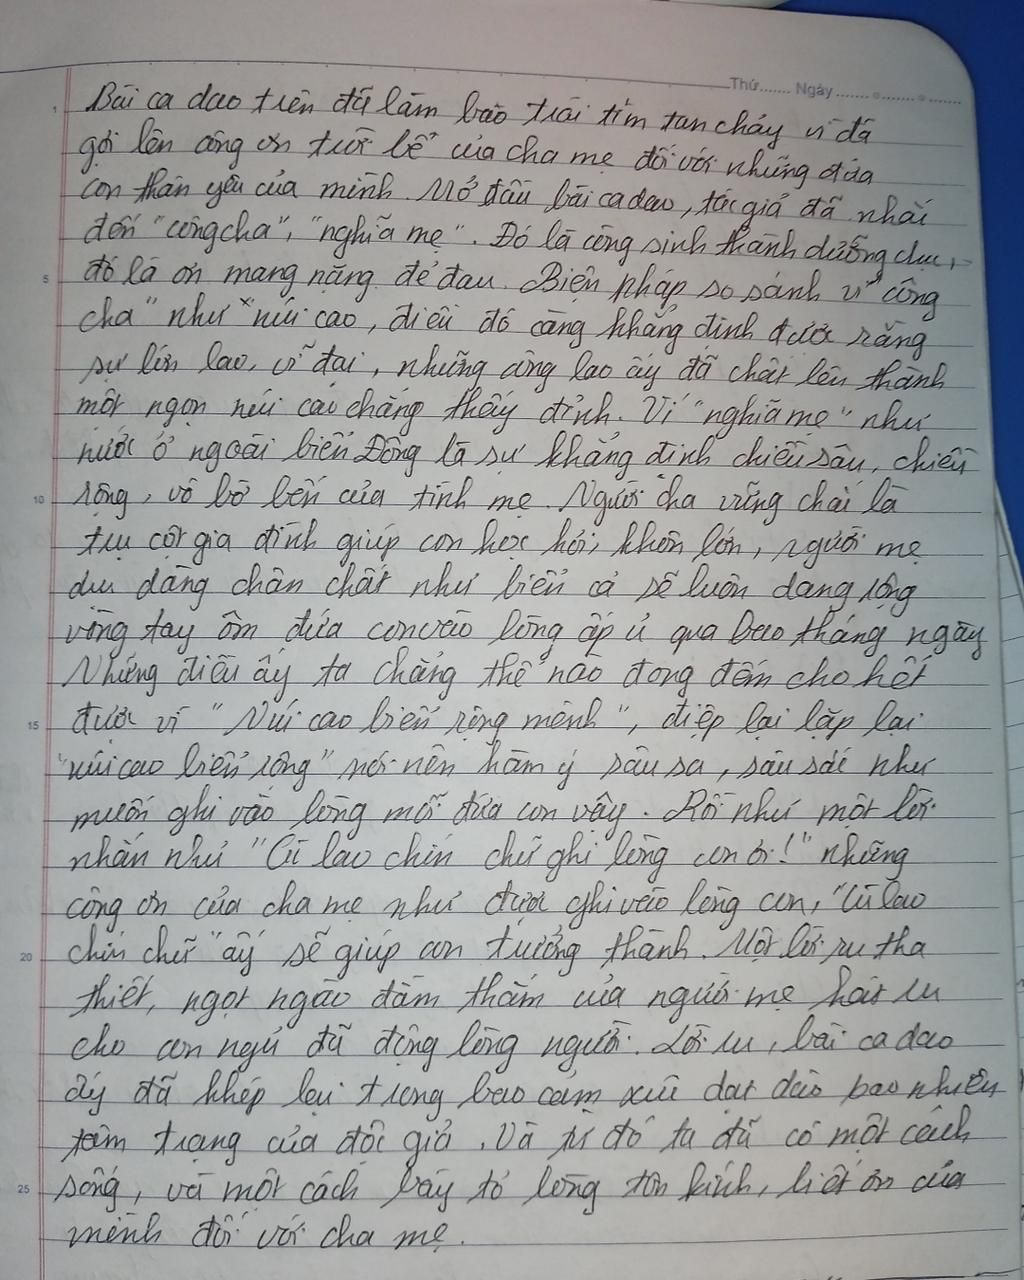 Thứ....... Ngày ....................
1 Bài ca dao trên đã làm bao trái tim tan chảy vì đã
gợi lên công ơn trời bể của cha mẹ đối với những đứa
con thân yêu của mình. Mở đầu bài ca dao, tác giả đã nhắc
đến "công cha", "nghĩa mẹ". Đó là công sinh thành dưỡng dục,
5 đó là ơn mang nặng đẻ đau. Biện pháp so sánh ví "công
cha" như "núi cao, điều đó càng khẳng định được rằng
sự lớn lao, vĩ đại, những công lao ấy đã chất lên thành
một ngọn núi cao chẳng thấy đỉnh. Ví "nghĩa mẹ" như
nước ở ngoài biển Đông là sự khẳng định chiều sâu, chiều
10 rộng, vô bờ bến của tình mẹ. Người cha vững chãi là
trụ cột gia đình giúp con học hỏi, khôn lớn, người mẹ
dịu dàng chân chất như biển cả sẽ luôn dang rộng
vòng tay ôm đứa con vào lòng ấp ủ qua bao tháng ngày
Những điều ấy ta chẳng thể nào đong đếm cho hết
15 được vì "Núi cao biển rộng mênh", điệp lại lặp lại
"núi cao biển rộng" nói nên hàm ý sâu sa, sâu sắc như
muốn ghi vào lòng mỗi đứa con vậy. Rồi như một lời
nhắn như "Cù lao chín chữ ghi lòng con ơi!" những
công ơn của cha mẹ như được ghi vào lòng con, "Cù lao
20 chín chữ" ấy sẽ giúp con trưởng thành. Một lời ru tha
thiết, ngọt ngào đằm thắm của người mẹ hát ru
cho con ngủ đã động lòng người. Lời ru, bài ca dao
ấy đã khép lại trong bao cảm xúc dạt dào bao nhiêu
tâm trạng của độc giả. Và từ đó ta đã có một cách
25 sống, và một cách bày tỏ lòng tôn kính, biết ơn của
mình đối với cha mẹ.